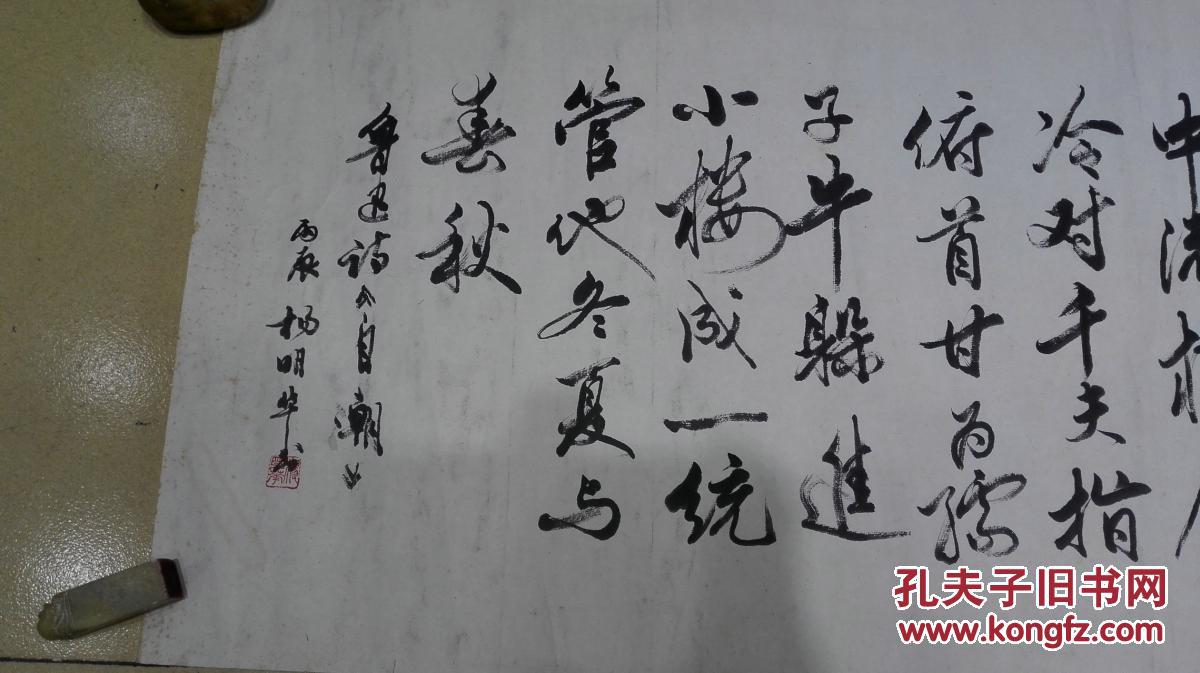 中流横
冷对千夫指
俯首甘为孺
子牛躲進
小楼成一统
管他冬夏与
春秋
鲁迅诗《自潮》
丙辰 杨明华书
孔夫子旧书网
www.kongfz.com